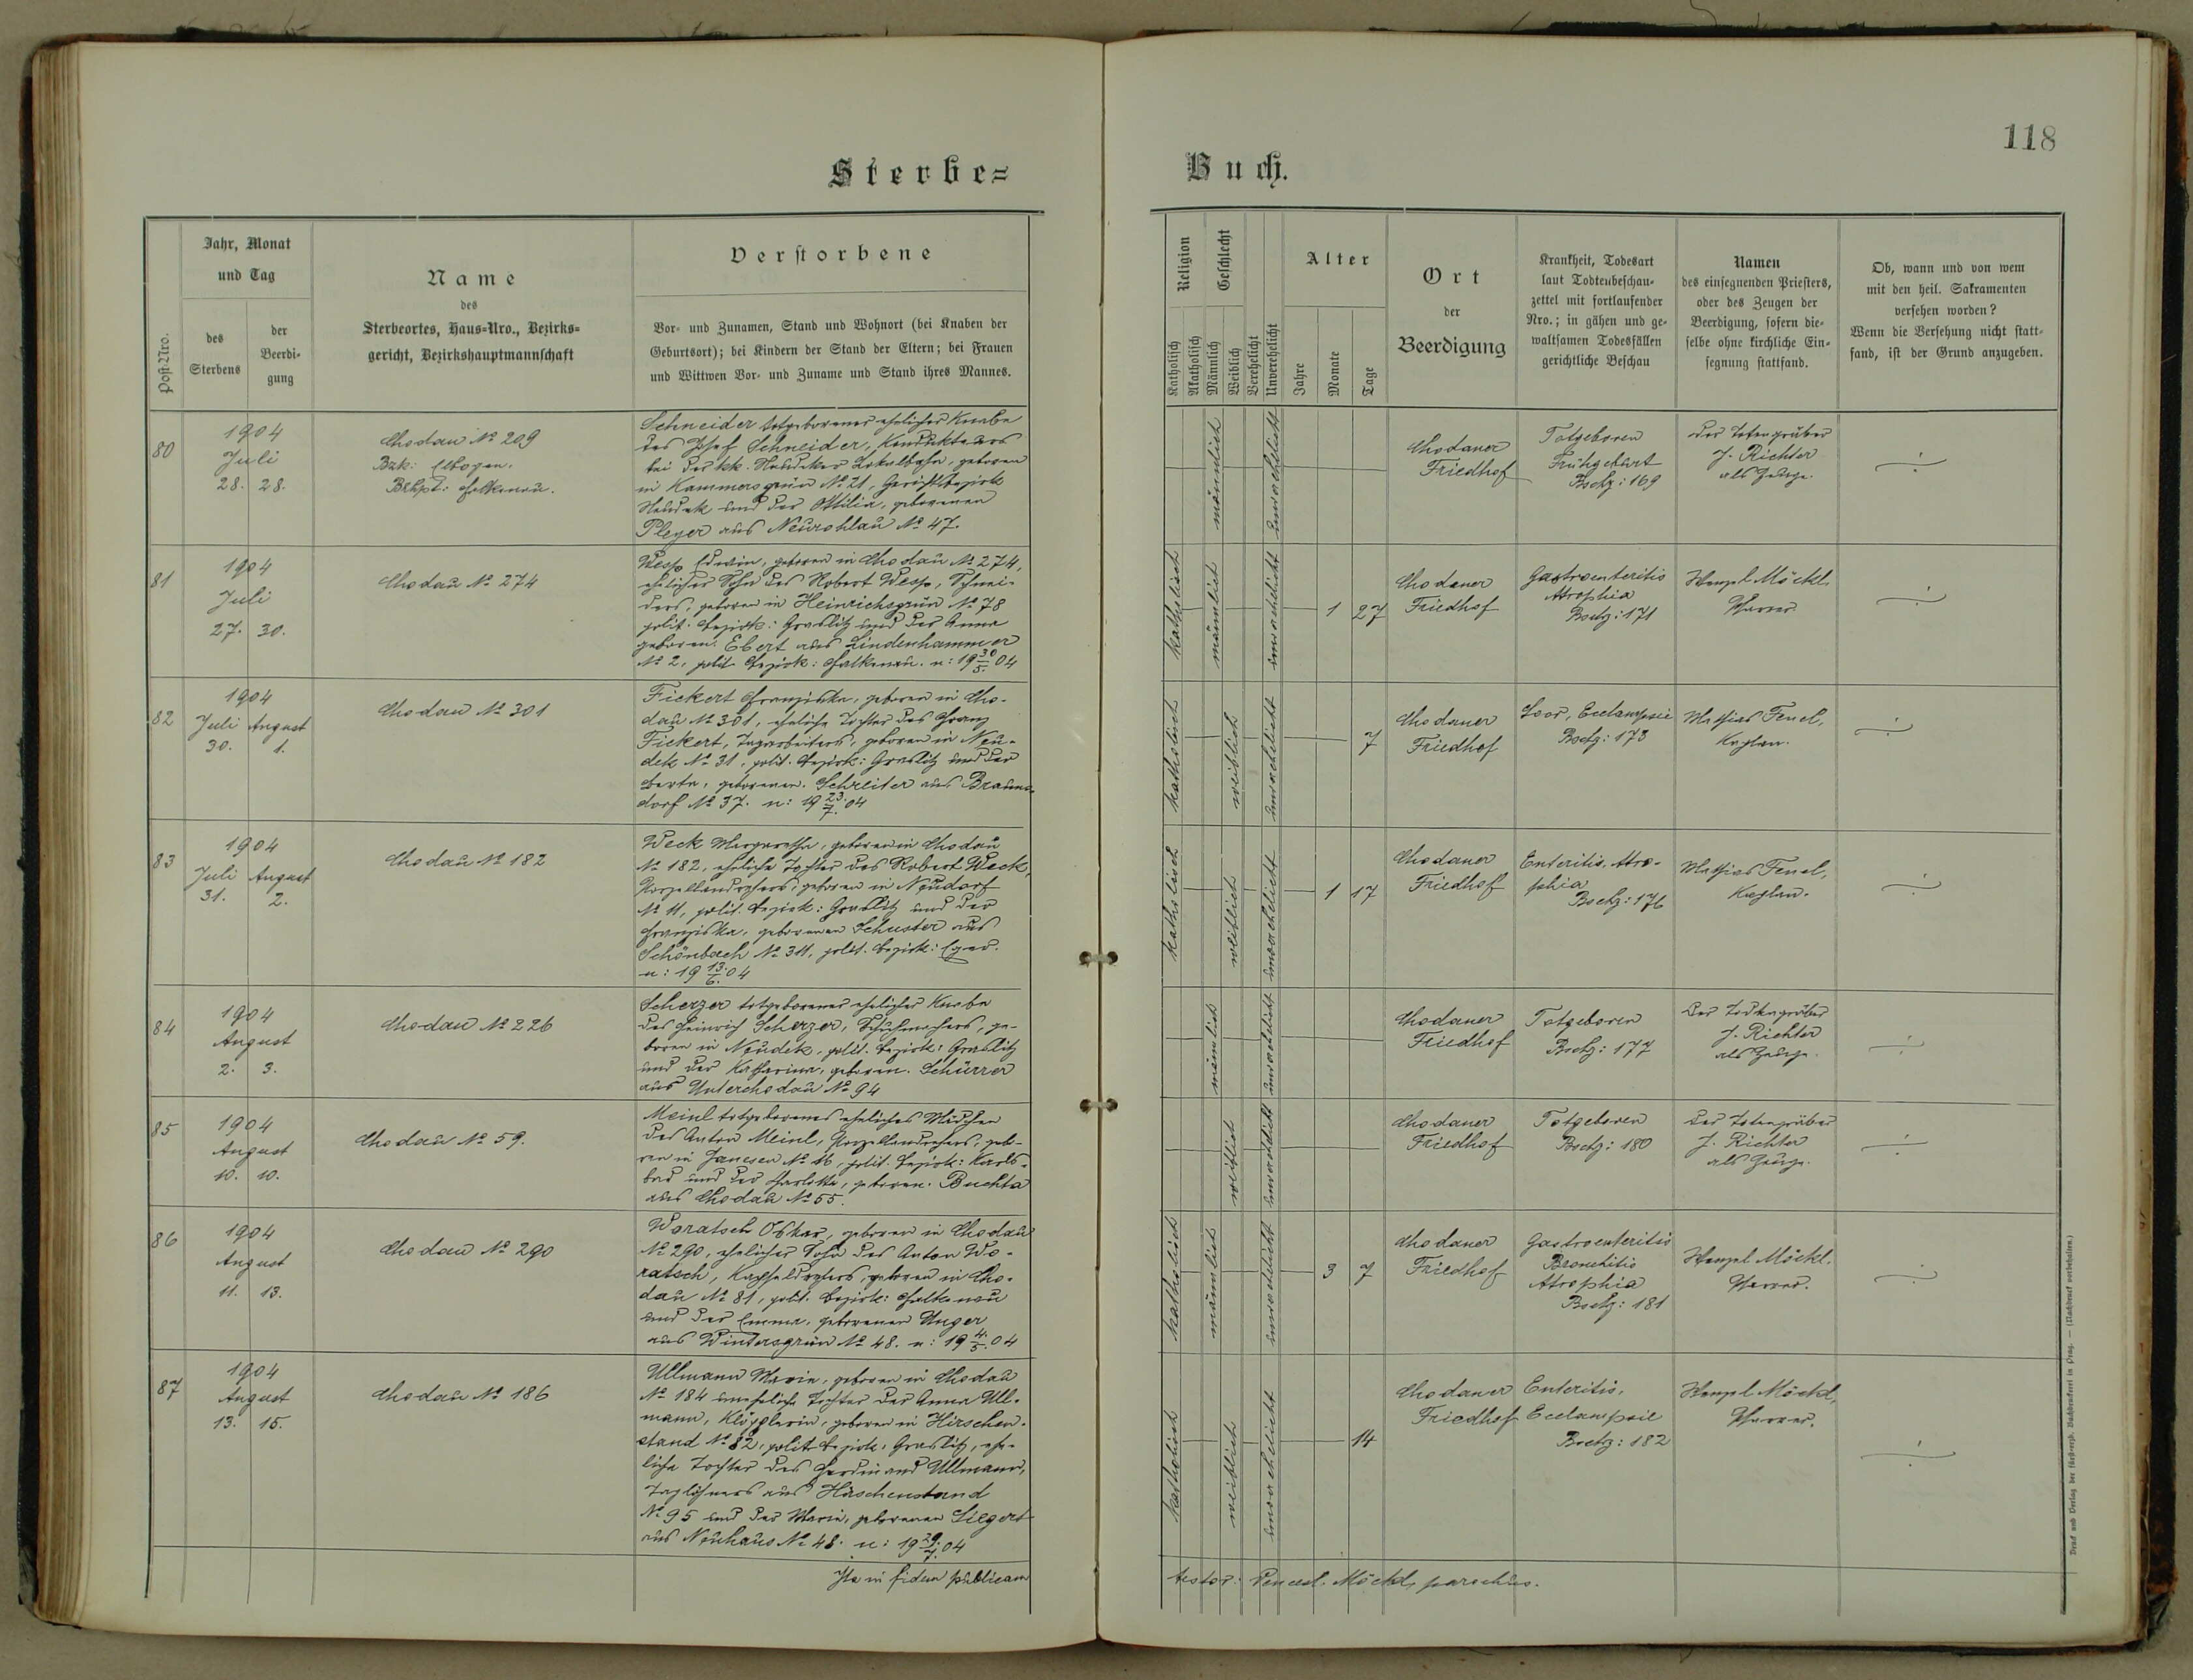 118
Sterbe=
Buch.
Post-Nro.
Jahr, Monat
und Tag
des
Sterbens
der
Beerdi-
gung
Name
des
Sterbeortes, Haus=Nro., Bezirks=
gericht, Bezirkshauptmannschaft
Verstorbene
Vor- und Zunamen, Stand und Wohnort (bei Knaben der
Geburtsort); bei Kindern der Stand der Eltern; bei Frauen
und Wittwen Vor- und Zuname und Stand ihres Mannes.
Religion
Katholisch
Akatholisch
Geschlecht
Männlich
Weiblich
Verehelicht
Unverehelicht
Alter
Jahre
Monate
Tage
Ort
der
Beerdigung
Krankheit, Todesart
laut Todtenbeschau-
zettel mit fortlaufender
Nro.; in gähen und ge-
waltsamen Todesfällen
gerichtliche Beschau
Namen
des einsegnenden Priesters,
oder des Zeugen der
Beerdigung, sofern die-
selbe ohne kirchliche Ein-
segnung stattfand.
Ob, wann und von wem
mit den heil. Sakramenten
versehen worden?
Wenn die Versehung nicht statt-
fand, ist der Grund anzugeben.
80
1904
Juli
28. 28.
Chodau № 209
Bzk: Elbogen.
Bzhpt: Falkenau.
Schneider totgeborener ehelicher Knabe
des Josef Schneider, Kondukteurs
bei der kk. Neudeker Lokalbahn, geboren
in Kammersgrün № 21, Gerichtsbezirk
Neudek und der Ottilia, geborenen
Pleyer aus Neurohlau № 47.
männlich
unverehelicht
Chodauer
Friedhof
Totgeboren
Frühgeburt
Bschz: 169
Der Totengräber
J. Richter
als Zeuge.
81
1904
Juli
27. 30.
Chodau № 274
Wess Edwin, geboren in Chodau № 274,
ehelicher Sohn des Robert Wess, Schnei-
ders, geboren in Heinrichsgrün № 78
polit. Bezirk: Graslitz und der Anna
geboren. Ebert aus Lindenhammer
№ 2, polit. Bezirk: Falkenau. n: 19 30/5. 04
katholisch
männlich
unverehelicht
1 27
Chodauer
Friedhof
Gastroenteritis
Atrophia
Bschz: 171
Wenzl Möckl,
Pfarrer.
82
1904
Juli August
30. 1.
Chodau № 301
Fickert Franziska, geboren in Cho-
dau № 301, eheliche Tochter des Franz
Fickert, Tagarbeiters, geboren in Neu-
dek № 31, polit. Bezirk: Graslitz und der
Berta, geborenen. Schreiter aus Brauns-
dorf № 37. n: 19 23/7. 04
katholisch
weiblich
unverehelicht
7
Chodauer
Friedhof
Soor, Eclampsie
Bschz: 173
Mathias Fenel,
Kaplan.
83
1904
Juli August
31. 2.
Chodau № 182
Weck Margaretha, geboren in Chodau
№ 182, eheliche Tochter des Robert Weck,
Porzellandrehers, geboren in Neudorf
№ 11, polit. Bezirk: Graslitz und der
Franziska, geborenen Schuster aus
Schönbach № 311, polit. Bezirk: Eger.
n: 19 13/6. 04
katholisch
weiblich
unverehelicht
1 17
Chodauer
Friedhof
Enteritis, Atro-
phia
Bschz: 176
Mathias Fenel,
Kaplan.
84
1904
August
2. 3.
Chodau № 226
Scherzer totgeborener ehelicher Knabe
des Heinrich Scherzer, Schuhmachers, ge-
boren in Neudek, polit. Bezirk: Graslitz
und der Katharina, geboren. Schürrer
aus Unterchodau № 94
männlich
unverehelicht
Chodauer
Friedhof
Totgeboren
Bschz: 177
Der Totengräber
J. Richter
als Zeuge.
85
1904
August
10. 10.
Chodau № 59.
Meinl totgeborenes eheliches Mädchen
des Anton Meinl, Porzellandrehers, gebo-
ren in Janesen № 16, polit. Bezirk: Karls-
bad und der Barbara, geboren. Buchta
aus Chodau № 55.
weiblich
unverehelicht
Chodauer
Friedhof
Totgeboren
Bschz: 180
Der Totengräber
J. Richter
als Zeuge.
86
1904
August
11. 13.
Chodau № 290
Woratsch Oskar, geboren in Chodau
№ 290, ehelicher Sohn des Anton Wo-
ratsch, Kapseldrehers, geboren in Cho-
dau № 81, polit. Bezirk: Falkenau
und der Emma, geborenen Unger
aus Wintersgrün № 48. n: 19 4./5. 04
katholisch
männlich
unverehelicht
3 7
Chodauer
Friedhof
Gastroenteritis
Bronchitis
Atrophia
Bschz: 181
Wenzl Möckl,
Pfarrer.
87
1904
August
13. 15.
Chodau № 186
Ullmann Maria, geboren in Chodau
№ 184 uneheliche Tochter der Anna Ull-
mann, Klöpplerin, geboren in Hirschen-
stand № 82, polit Bezirk: Graslitz, ehe-
liche Tochter des Ferdinand Ullmann,
Taglöhners aus Hirschenstand
№ 95 und der Maria, geborenen Siegert
aus Neuhaus № 48. n: 19 29./7. 04
katholisch
weiblich
unverehelicht
14
Chodauer
Friedhof
Enteritis,
Eclampsie
Bschz: 182
Wenzl Möckl,
Pfarrer.
Ita in fidem publicam
testor: Wencesl. Möckl, parochus.
Druck und Verlag der fürsterzb. Buchdruckerei in Prag. — (Nachdruck vorbehalten.)